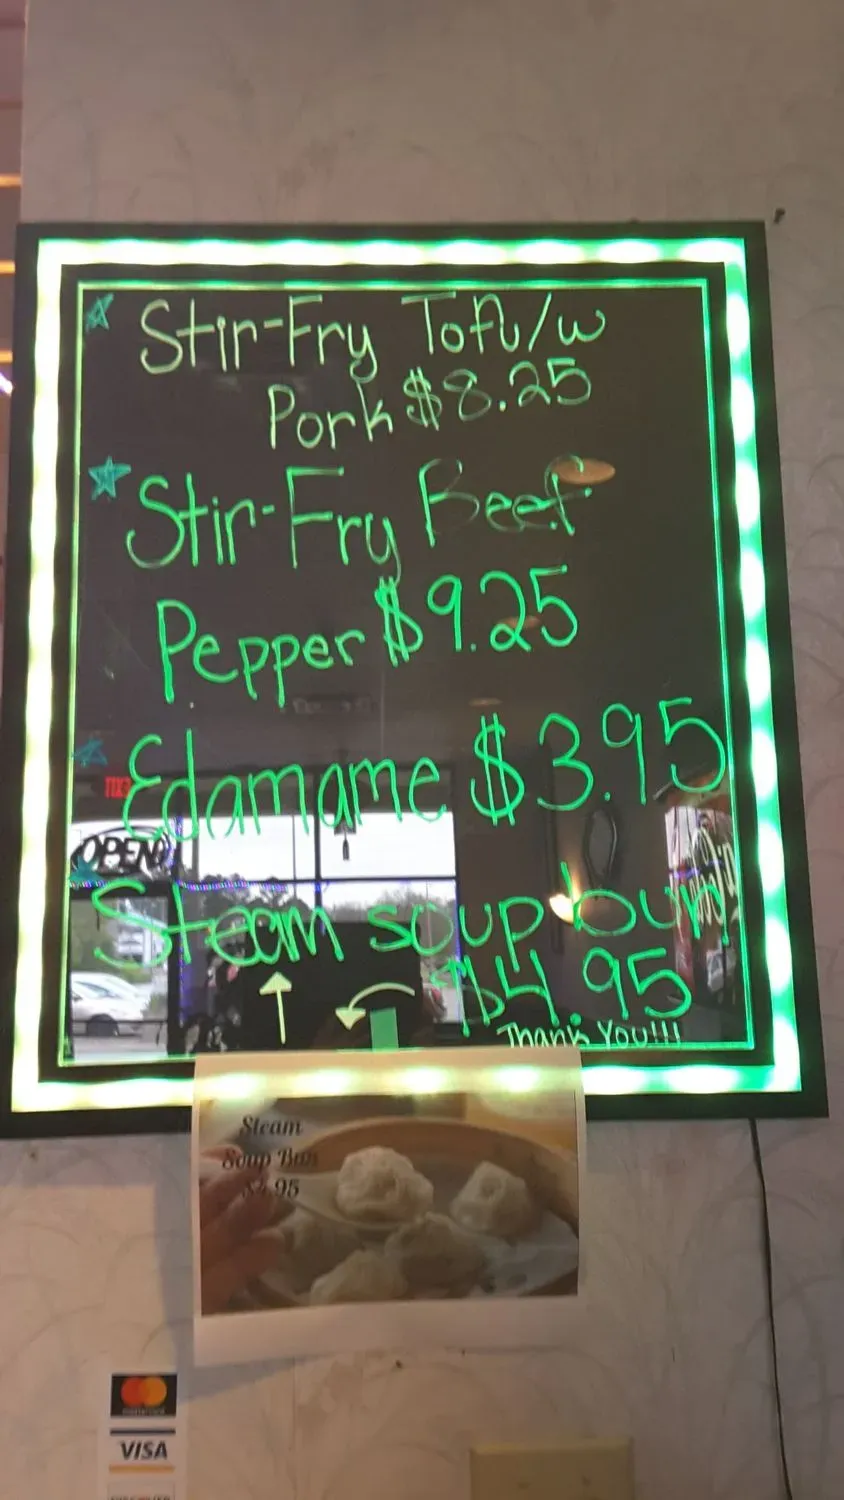 Stir-Fry Tofu/w
Pork $8.25
Stir-Fry Beef
Pepper $9.25
Edamame $3.95
OPEN
Steam soup bun
$4.95
Thank You!!!
Steam
Soup Bun
$4.95
VISA